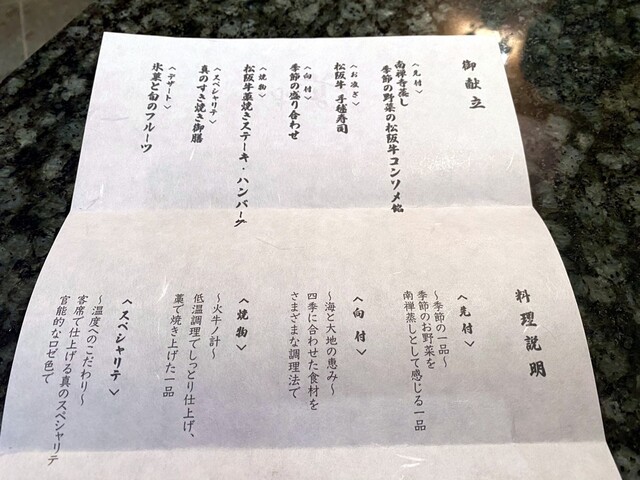 御献立
〈先付〉
南禅寺蒸し
季節の野菜の松阪牛コンソメ餡
〈お凌ぎ〉
松阪牛 手毬寿司
〈向付〉
季節の盛り合わせ
〈焼物〉
松阪牛藁焼きステーキ・ハンバーグ
〈スペシャリテ〉
真のすき焼き御膳
〈デザート〉
氷菓と旬のフルーツ
料理説明
〈先付〉
〜季節の一品〜
季節のお野菜を
南禅蒸しとして感じる一品
〈向付〉
〜海と大地の恵み〜
四季に合わせた食材を
さまざまな調理法で
〈焼物〉
〜火牛ノ計〜
低温調理でしっとり仕上げ、
藁で焼き上げた一品
〈スペシャリテ〉
〜温度へのこだわり〜
客席で仕上げる真のスペシャリテ
官能的なロゼ色て